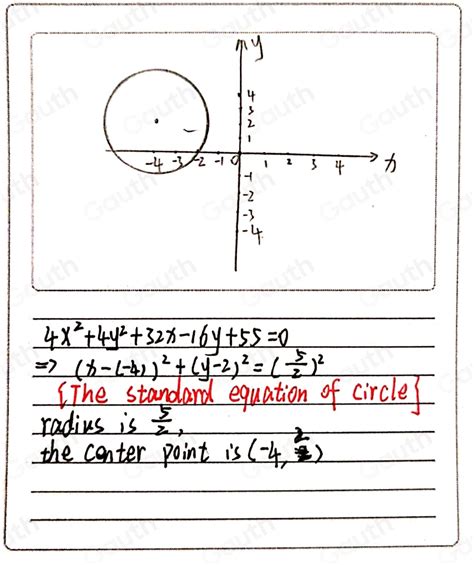 y
4
3
2
1
-4 -3 -2 -1 0 1 2 3 4 x
-1
-2
-3
-4
4x²+4y²+32x-16y+55=0
=> (x-(-4))²+(y-2)²=(5/2)²
{The standard equation of circle}
radius is 5/2,
the center point is (-4, 2)
Gauth